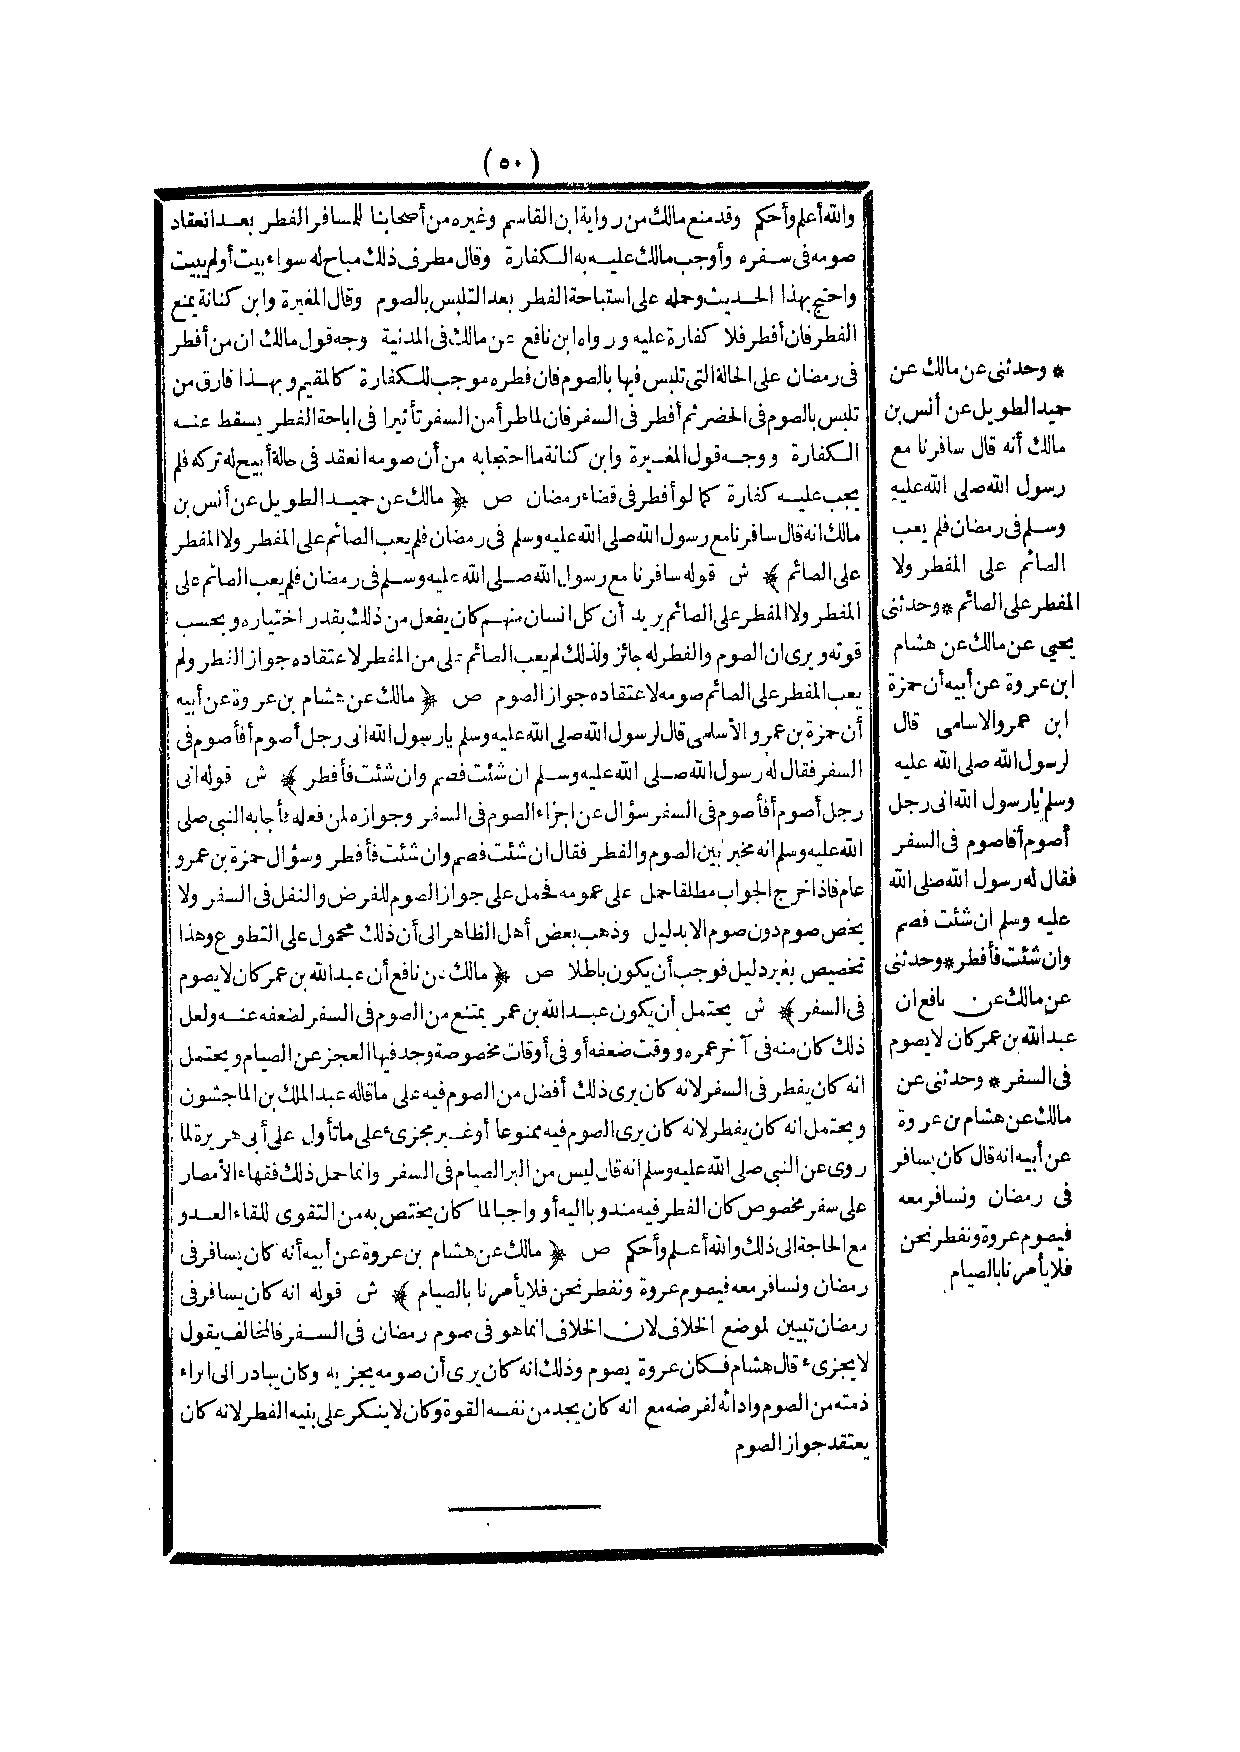 (٥٠)
والله أعلم وأحكم وقد منع مالك من رواية ابن القاسم وغيره من أصحابنا للمسافر الفطر بعد انعقاد
صومه فى سفره وأوجب مالك عليه به الكفارة وقال مطرف ذلك مباح له سواء بيت أو لم يبيت
واحتج بهذا الحديث وحمله على استباحة الفطر بعد التلبس بالصوم وقال المغيرة وابن كنانة يمنع
الفطر فان أفطر فلا كفارة عليه ورواه ابن نافع عن مالك فى المدنية وجه قول مالك ان من أفطر
فى رمضان على الحالة التى تلبس فيها بالصوم فان فطره موجب للكفارة كالمقيم وبهذا فارق من
تلبس بالصوم فى الحضر ثم أفطر فى السفر فان لما طرأ من السفر تأثيرا فى اباحة الفطر يسقط عنه
الكفارة ووجه قول المغيرة وابن كنانة ما احتجا به من أن صومه انعقد فى حالة أبيح له تركه فلم
يجب عليه كفارة كما لو أفطر فى قضاء رمضان ص ﴿ مالك عن حميد الطويل عن أنس بن
مالك انه قال سافرنا مع رسول الله صلى الله عليه وسلم فى رمضان فلم يعب الصائم على المفطر ولا المفطر
على الصائم ﴾ ش قوله سافرنا مع رسول الله صلى الله عليه وسلم فى رمضان فلم يعب الصائم على
المفطر ولا المفطر على الصائم يريد أن كل انسان منهم كان يفعل من ذلك بقدر اختياره وبحسب
قوته ويرى ان الصوم والفطر له جائز ولذلك لم يعب الصائم على من المفطر لاعتقاده جواز الفطر ولم
يعب المفطر على الصائم صومه لاعتقاده جواز الصوم ص ﴿ مالك عن هشام بن عروة عن أبيه
أن حمزة بن عمرو الأسلمى قال لرسول الله صلى الله عليه وسلم يارسول الله انى رجل أصوم أفأصوم فى
السفر فقال له رسول الله صلى الله عليه وسلم ان شئت فصم وان شئت فأفطر ﴾ ش قوله انى
رجل أصوم أفأصوم فى السفر سؤال عن اجزاء الصوم فى السفر وجوازه لمن فعله فأجابه النبى صلى
الله عليه وسلم انه مخير بين الصوم والفطر فقال ان شئت فصم وان شئت فأفطر وسؤال حمزة بن عمرو
عام فاذا خرج الجواب مطلقا حمل على عمومه فحمل على جواز الصوم للفرض والنفل فى السفر ولا
يخص صوم دون صوم الا بدليل وذهب بعض أهل الظاهر الى أن ذلك محمول على التطوع وهذا
تخصيص بغير دليل فوجب أن يكون باطلا ص ﴿ مالك عن نافع أن عبد الله بن عمر كان لا يصوم
فى السفر ﴾ ش يحتمل أن يكون عبد الله بن عمر يمتنع من الصوم فى السفر لضعفه عنه ولعل
ذلك كان منه فى آخر عمره ووقت ضعفه أو فى أوقات مخصوصة وجد فيها العجز عن الصيام ويحتمل
انه كان يفطر فى السفر لانه كان يرى ذلك أفضل من الصوم فيه على ما قاله عبد الملك بن الماجشون
ويحتمل انه كان يفطر لانه كان يرى الصوم فيه ممنوعا أو غير مجزىء على ما تأول على أبى هريرة لما
روى عن النبى صلى الله عليه وسلم انه قال ليس من البر الصيام فى السفر وانما حمل ذلك فقهاء الأمصار
على سفر مخصوص كان الفطر فيه مندوبا اليه أو واجبا لما كان يختص به من التقوى للقاء العدو
مع الحاجة الى ذلك والله أعلم وأحكم ص ﴿ مالك عن هشام بن عروة عن أبيه أنه كان يسافر فى
رمضان ونسافر معه فيصوم عروة ونفطر نحن فلا يأمرنا بالصيام ﴾ ش قوله انه كان يسافر فى
رمضان تبيين لموضع الخلاف لان الخلاف انما هو فى صوم رمضان فى السفر فالمخالف يقول
لا يجزىء قال هشام فكان عروة يصوم وذلك انه كان يرى أن صومه يجزيه وكان يبادر الى ابراء
ذمته من الصوم وادائه لفرضه مع انه كان يجد من نفسه القوة وكان لا ينكر على بنيه الفطر لانه كان
يعتقد جواز الصوم
* وحدثنى عن مالك عن
حميد الطويل عن أنس بن
مالك أنه قال سافرنا مع
رسول الله صلى الله عليه
وسلم فى رمضان فلم يعب
الصائم على المفطر ولا
المفطر على الصائم * وحدثنى
يحيى عن مالك عن هشام
ابن عروة عن أبيه أن حمزة
ابن عمرو الاسلمى قال
لرسول الله صلى الله عليه
وسلم يارسول الله انى رجل
أصوم أفأصوم فى السفر
فقال له رسول الله صلى الله
عليه وسلم ان شئت فصم
وان شئت فأفطر * وحدثنى
عن مالك عن نافع ان
عبد الله بن عمر كان لا يصوم
فى السفر * وحدثنى عن
مالك عن هشام بن عروة
عن أبيه انه قال كان يسافر
فى رمضان ونسافر معه
فيصوم عروة ونفطر نحن
فلا يأمرنا بالصيام